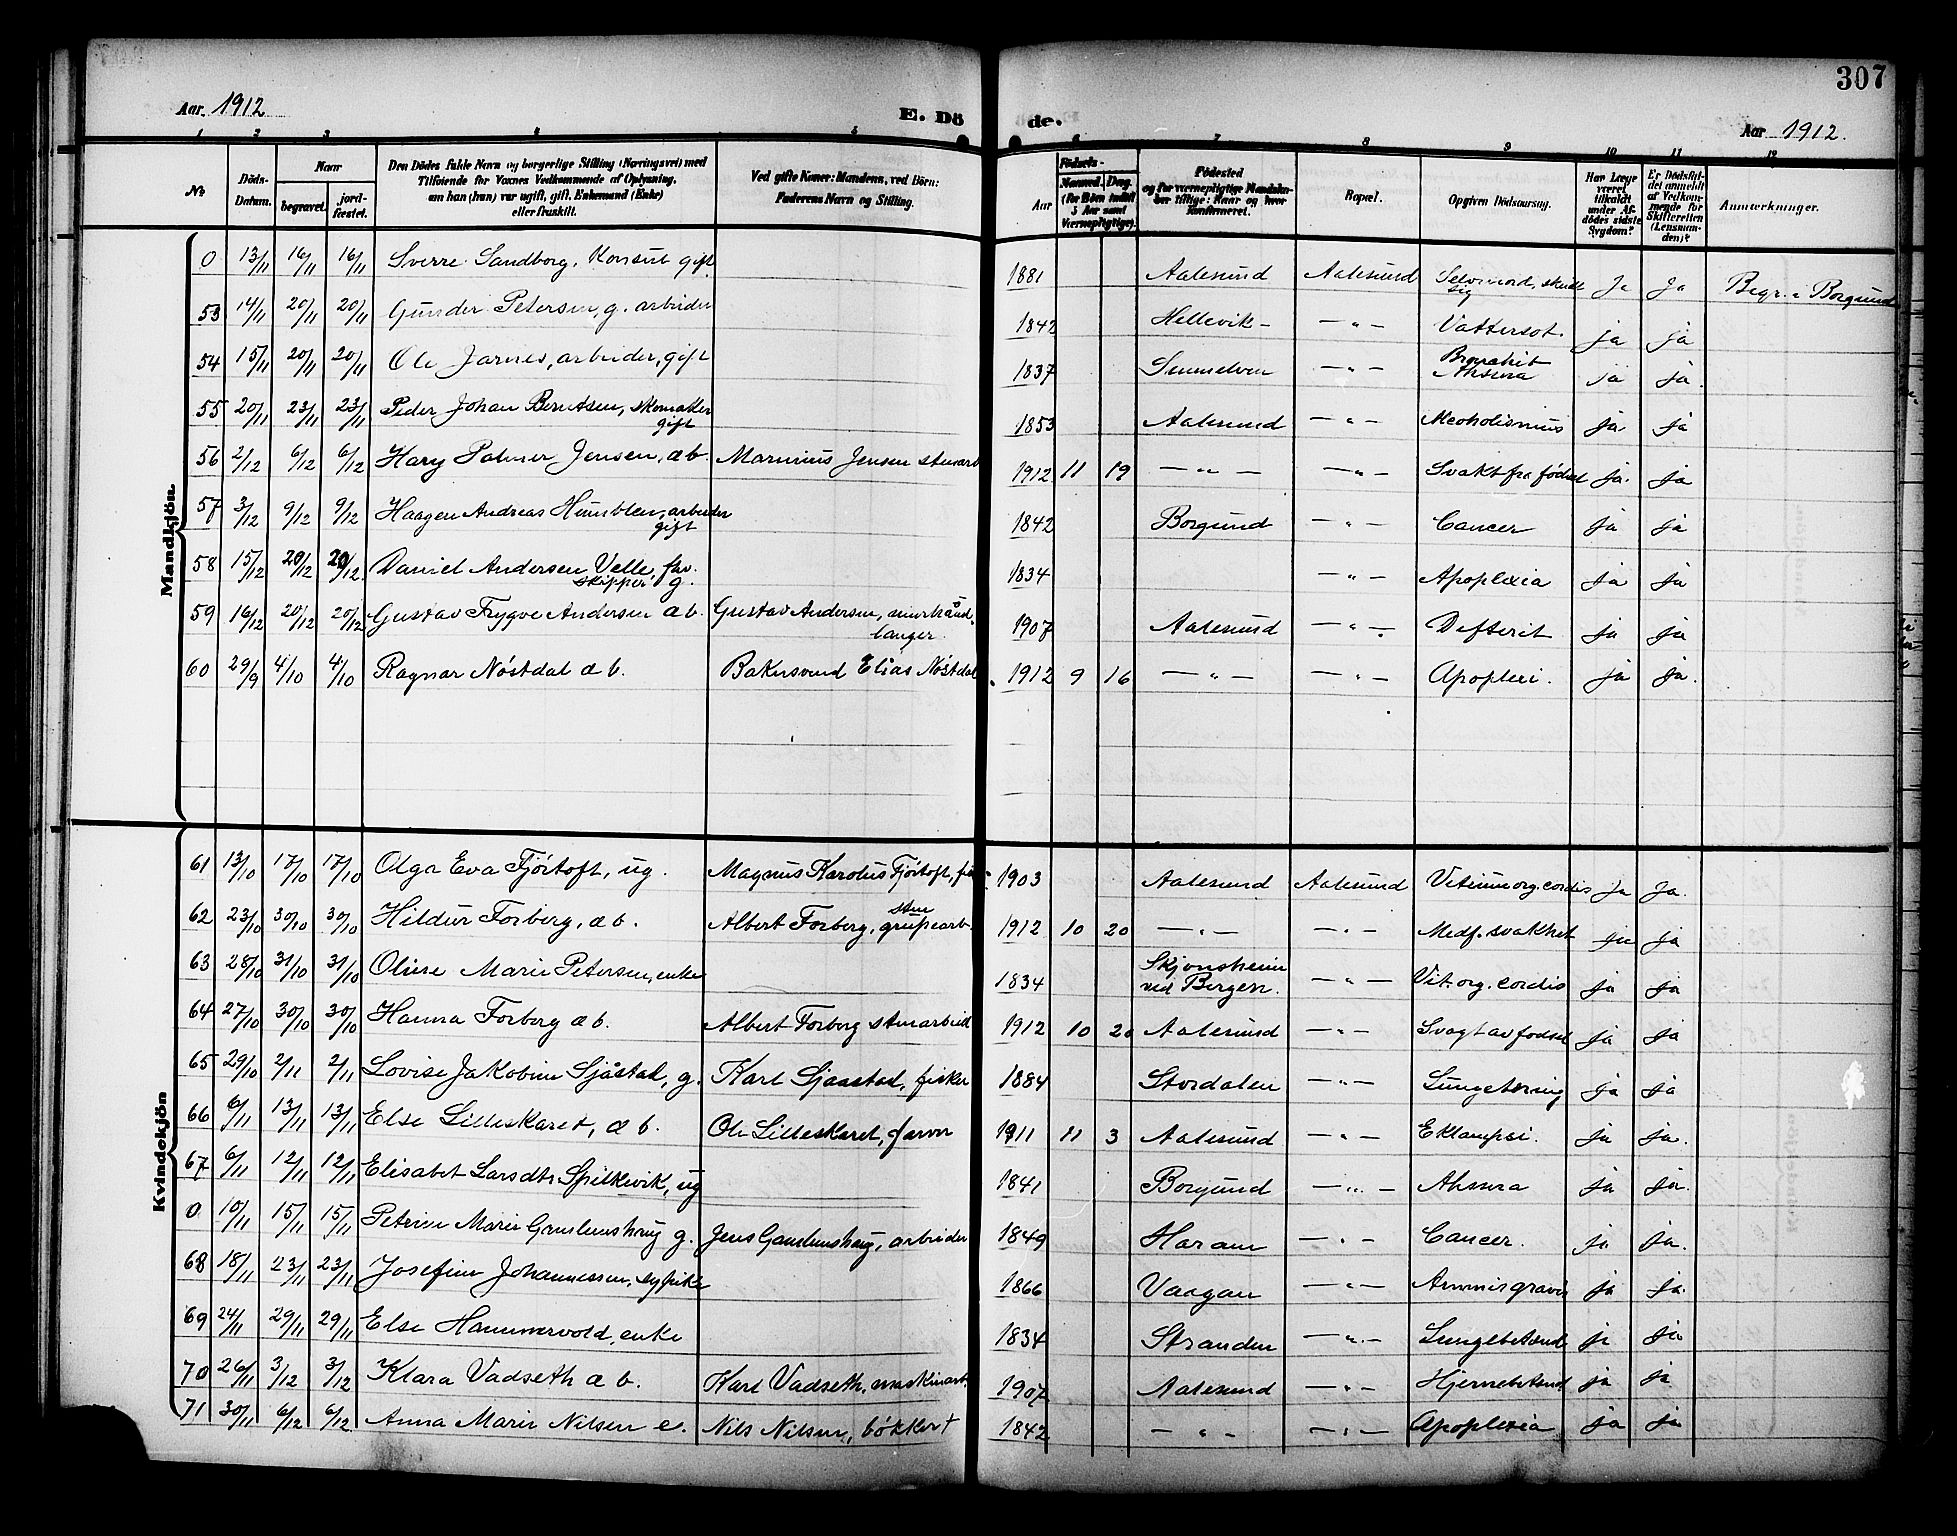 307
Aar. 1912
E. Dö
de.
Aar 1912.
1 2 3 4 5 6 7 8 9 10 11 12
No
Döds-Datum.
Naar
begravet.
jord-fæstet.
Den Dödes fulde Navn og borgerlige Stilling (Næringsvei) med
Tilföiende for Voxnes Vedkommende af Oplysning,
om han (hun) var ugift, gift, Enkemand (Enke)
eller fraskilt.
Ved gifte Koner: Mandens, ved Börn:
Faderens Navn og Stilling.
Födsels-
Aar
Maaned. Dag.
(for Börn indtil
5 Aar samt
Værnepligtige).
Födested
og for værnepligtige Mandskaber tillige: Naar og hvor Konfirmeret.
Bopæl.
Opgiven Dödsaarsag.
Har Læge
været
tilkaldt
under Afdödes sidste
Sygdom?
Er Dödsfaldet anmeldt
af Vedkommende for
Skifteretten
(Lensmanden)?
Anmærkninger.
Mandkjön.
0 13/11 16/11 16/11 Sverre Sandborg, Konsul gift 1881 Aalesund Aalesund Selvmord, skudt sig Ja Ja Begr. i Borgund
53 14/11 20/11 20/11 Gunder Petersen, g. arbeider 1842 Hellevik — „ — Vattersot. ja ja
54 15/11 20/11 20/11 Ole Jarnes, arbeider, gift 1837 — „ — Bronchit ja ja.
55 20/11 23/11 23/11 Peder Johan Berntsen, skomaker gift 1853 Aalesund — „ — Alcoholismus ja ja
56 2/12 6/12 6/12 Harry Palmer Jensen, æb. Marinius Jensen stuarb 1912 11 19 — „ — — „ — Svakt fra fødsel ja. ja
57 3/12 9/12 9/12 Haagen Andreas Humblen, arbeider gift 1842 Borgund — „ — Cancer ja ja
58 15/12 20/12 20/12 Daniel Andersen Velle, fhv. skipper g. 1834 — „ — Apoplexia ja ja
59 16/12 20/12 20/12 Gustav Trygve Andersen æb. Gustav Andersen, murhåndlanger. 1907 Aalesund — „ — Difterit ja ja
60 29/9 4/10 4/10 Ragnar Nöstdal æb. Bakersvend Elias Nöstdal 1912 9 16 — „ — — „ — Apoplexi. ja ja.
Kvindekjön
61 13/10 17/10 17/10 Olga Eva Fjörtoft, ug. Magnus Karolus Fjörtoft, 1903 Aalesund Aalesund Vitium org. cordis ja Ja.
62 23/10 30/10 30/10 Hildur Forberg, æb. Albert Forberg, stue 1912 10 20 — „ — — „ — Medf. svakhet ja ja
63 28/10 31/10 31/10 Oline Marie Petersen, enke 1834 Skjonsheim ved Bergen. — „ — Vit. org. cordis ja ja
64 27/10 30/10 30/10 Hanna Forberg æb. Albert Forberg stuearbeid 1912 10 20 Aalesund — „ — Svagt av fødsel ja ja
65 29/10 2/11 2/11 Lovise Jakobine Sjåstad, g. Karl Sjaastad, fisker 1884 Stordalen — „ — Lungetæring ja ja
66 6/11 13/11 13/11 Else Lilleskaret, æb. Ole Lilleskaret, farver 1911 11 3 Aalesund — „ — Eklampsi. ja ja.
67 6/11 12/11 12/11 Elisabet Larsdtr Spilkevik, ug 1841 Borgund — „ — ja ja.
0 10/11 15/11 15/11 Petrine Marie Gamlemshaug g. Jens Gamlemshaug, arbeider 1849 Haram — „ — Cancer. ja ja.
68 18/11 23/11 23/11 Josefine Johannessen, sypike 1866 Vaagan — „ — ja ja.
69 24/11 29/11 29/11 Else Hammervold, enke 1834 Stranden — „ — Lungebetænd ja ja
70 26/11 3/12 3/12 Klara Vadseth æb. Karl Vadseth, maskinarb. 1907 Aalesund — „ — Hjernebetænd ja ja
71 30/11 6/12 6/12 Anna Marie Nilsen e. Nils Nilsen, bökker † 1842 — „ — — „ — Apoplexia ja ja